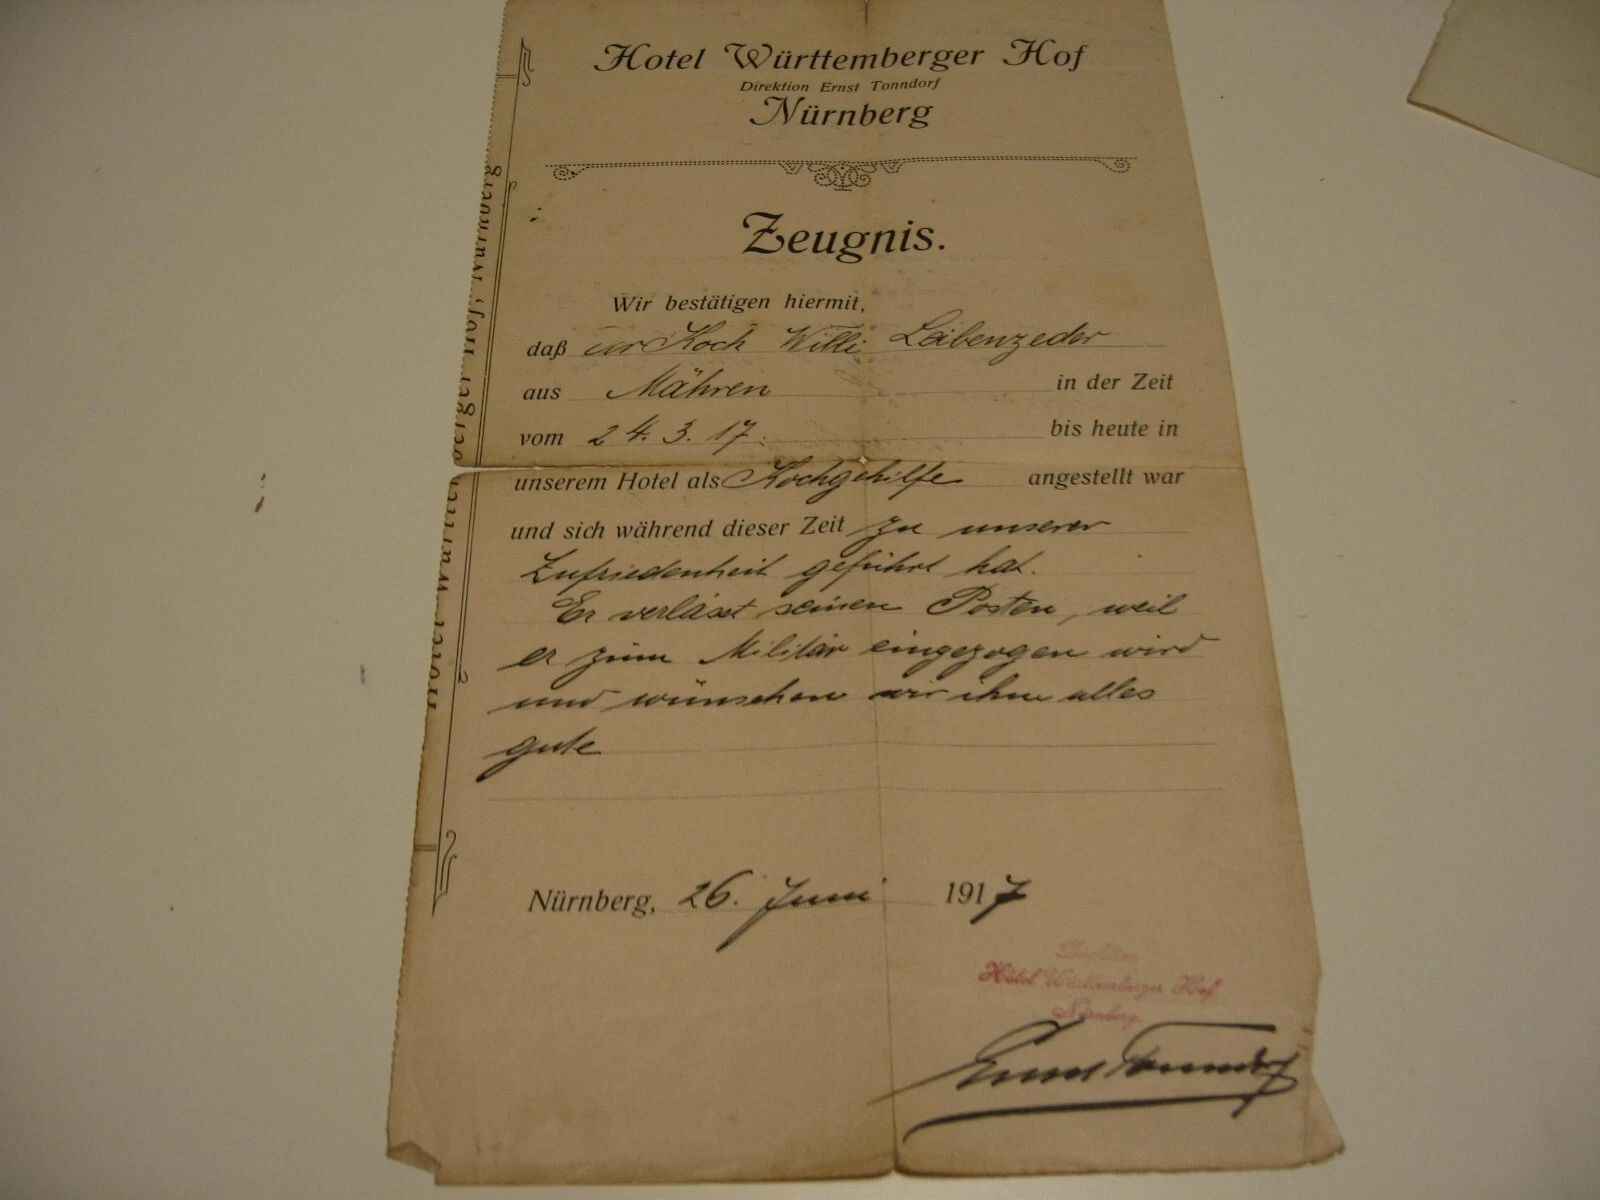 Hotel Württemberger Hof
Direktion Ernst Tonndorf
Nürnberg
Zeugnis.
Wir bestätigen hiermit,
daß der Koch Willi Leibenzeder
aus Mähren in der Zeit
vom 24. 3. 17. bis heute in
unserem Hotel als Kochgehilfe angestellt war
und sich während dieser Zeit zu unserer
Zufriedenheit geführt hat.
Er verlässt seinen Posten, weil
er zum Militär eingezogen wird
und wünschen wir ihm alles
gute
Nürnberg, 26. Juni 1917
Direktion
Hôtel Württemberger Hof
Nürnberg.
Ernst Tonndorf
Hof, Nürnberg